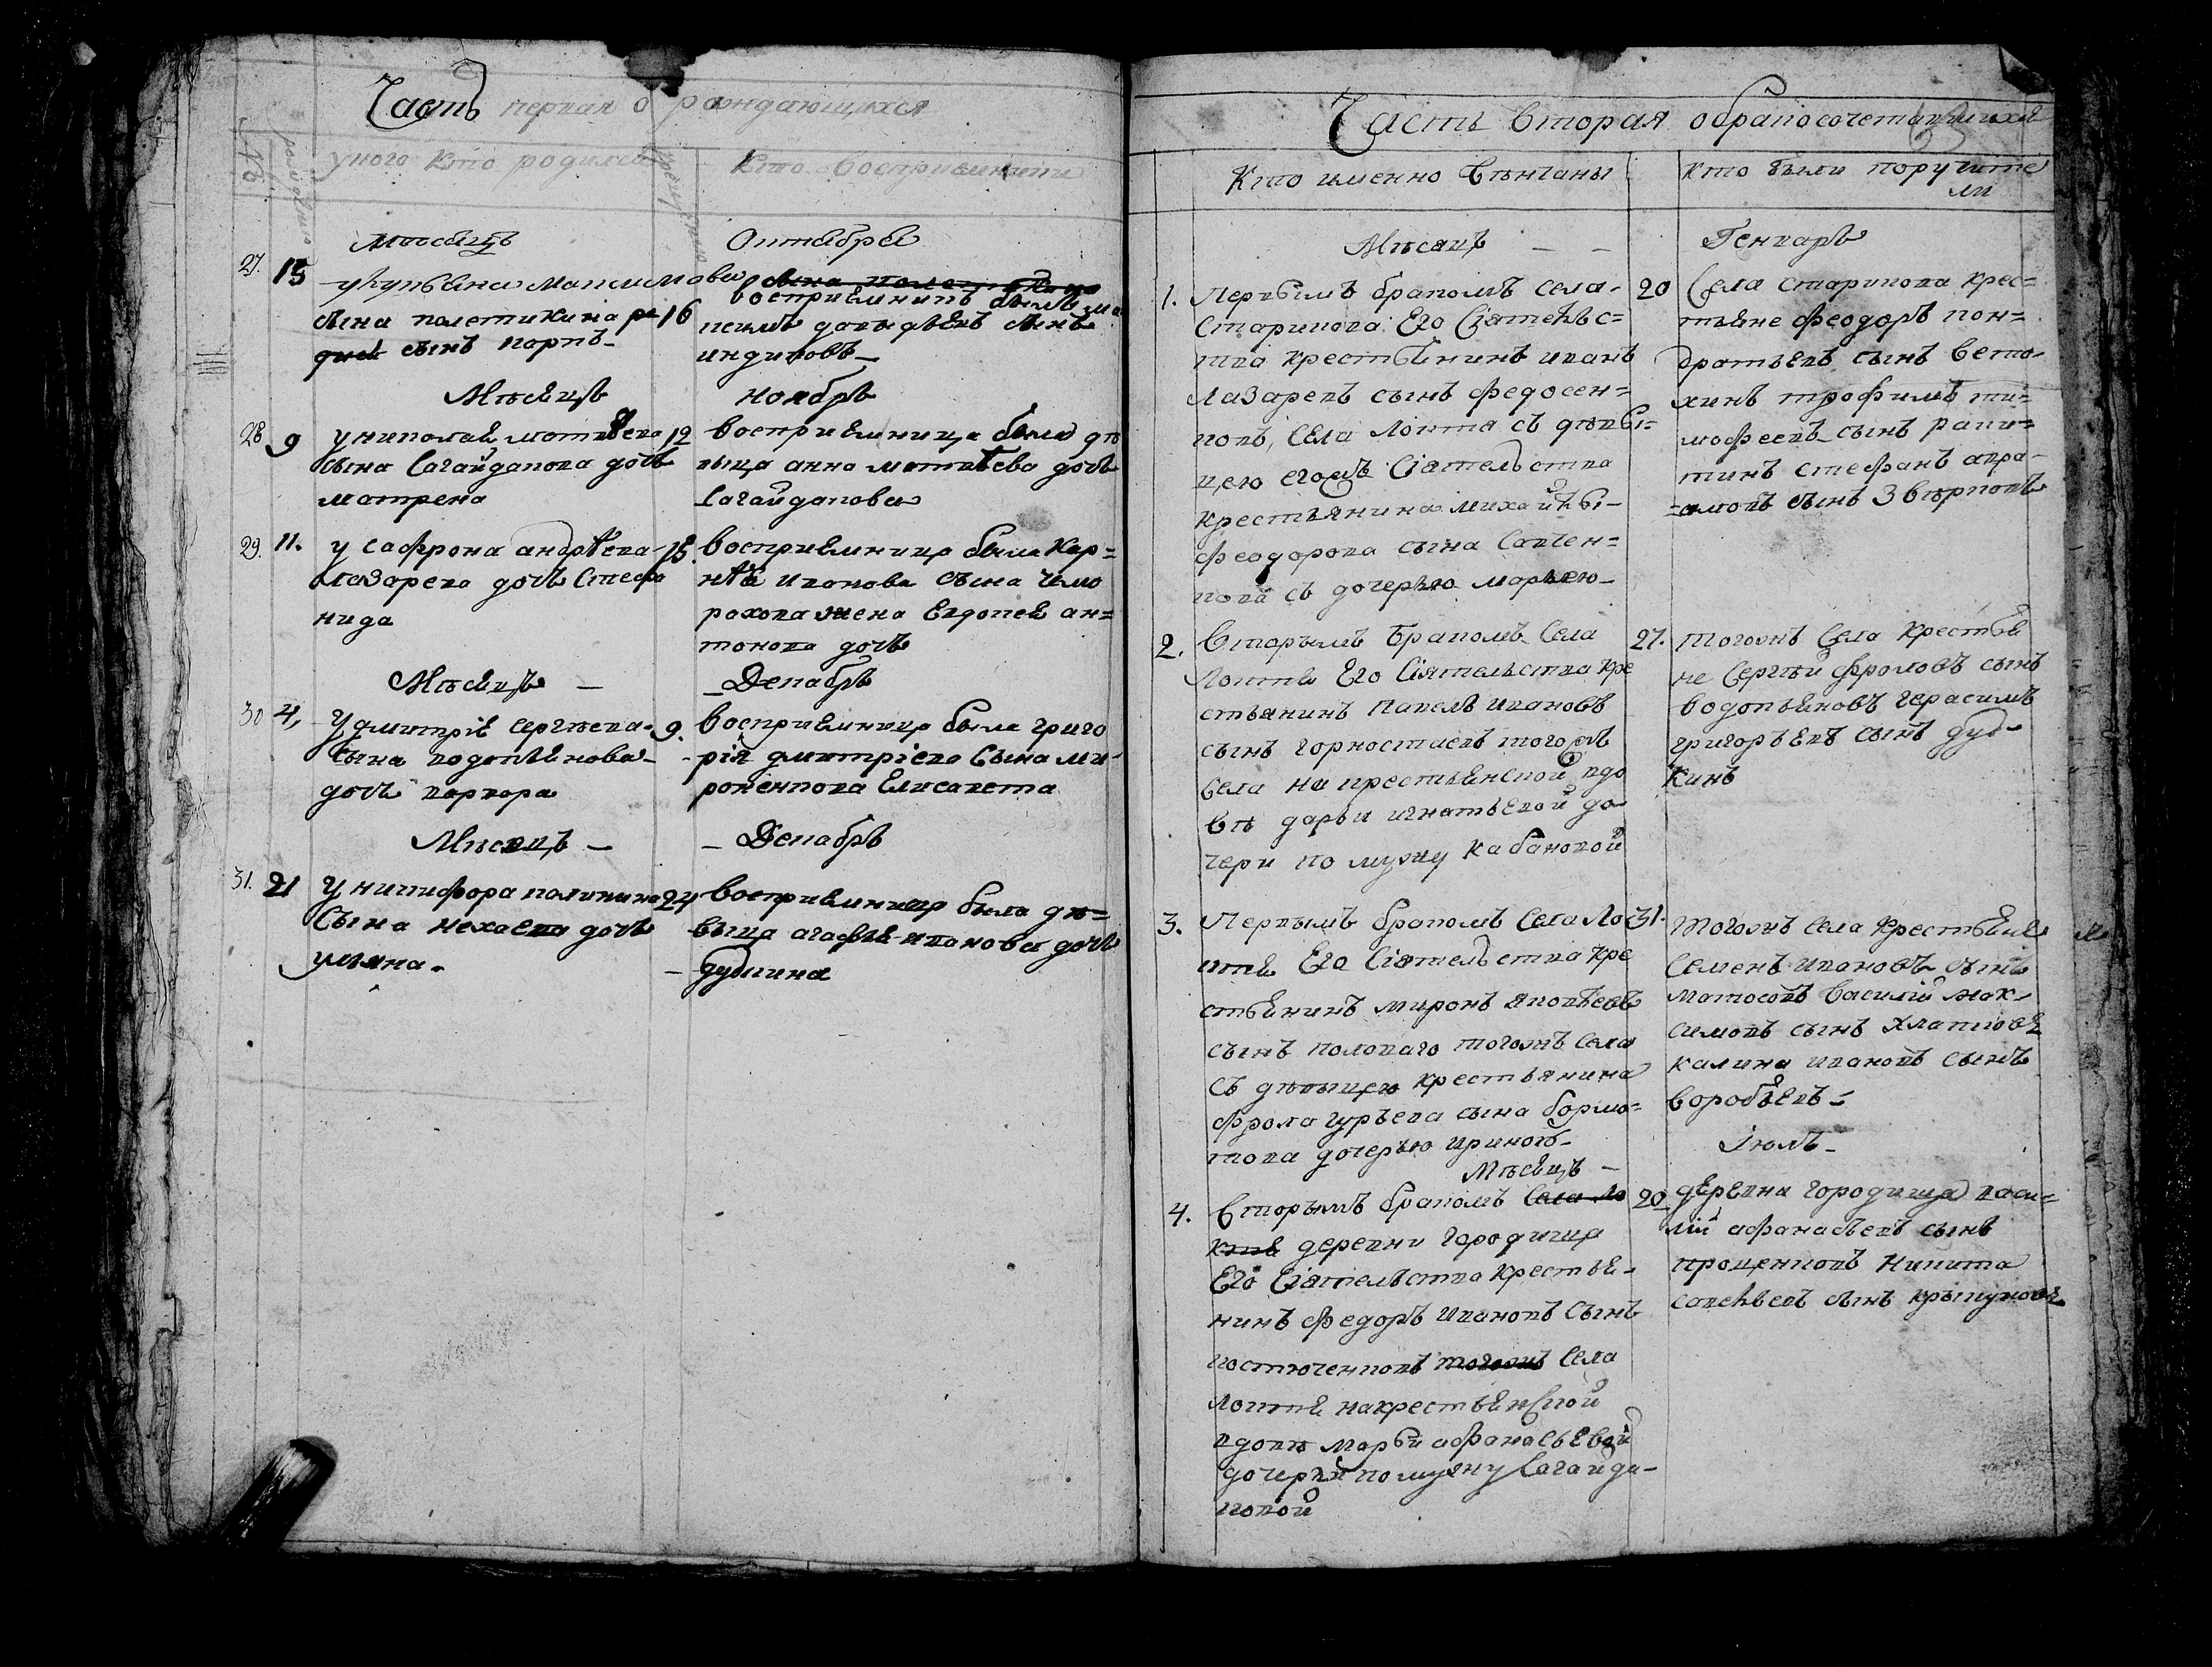 Часть первая о рождающихся
№
рождение
у кого кто родился
крещение
Кто восприемники
Месяцъ
Октября
27. 15 у Купьяна Максимова
сына полетикина ро 16
дися сынъ карпъ
восприемникъ былъ ма
ксимъ давыдѣевъ сынъ
индиковъ
Мѣсяцъ
ноябрь
28 9 у николая матвѣева 12
сына Сагайдакова дочь
матрена
восприемница была дѣ
вица анна матвѣева дочь
Сагайдакова
29. 11. у сафрона андрѣева 15.
лазарева дочь Стефа
нида
восприемница была Кор=
нѣя иванова сына чемо
рохова жена Евдокея ан=
тонова дочь
Мѣсяцъ
Декабрь
30 4, У дмитрія сергѣева 9.
сына водопьянова
дочь варвара
восприемница была григо
рія дмитріева сына ми
роненкова Елисавета
Мѣсяцъ
Декабрь
31. 21 У никифора каликина 24
сына нехаева дочь
ульяна
восприемница была дѣ=
вица агафья иванова дочь
дудкина
Часть вторая о бракосочетавшихся
63
Кто именно вѣнчаны
кто были поручите
ли
Мѣсяцъ
Генварь
1. Первымъ бракомъ села
Старикова Его Сіятельс=
тва крестьянинъ иванъ
Лазаревъ сынъ федосен=
ковъ, села локтя съ девы=
цею егожъ Сіятельства
крестьянина михайлы
феодорова сына Савчен=
кова съ дочерью марьею
20 Села старикова крес=
тьяне феодоръ кон=
дратьевъ сынъ вето
хинъ трофимъ ти=
мофеевъ сынъ раки=
тинъ стефанъ авра
=амовъ сынъ Звѣрковъ
2. вторымъ бракомъ Села
локтя Его Сіятельства кре
стьянинъ павелъ ивановъ
сынъ горностаевъ тогожъ
села на крестьянской вдо
вѣ дарьи игнатьевой до
чери по мужу кабановой
27. тогожъ села крестья
не Сергѣй фроловъ сынъ
водопьяновъ герасимъ
григорьевъ сынъ дуд
кинъ
3. Первымъ бракомъ села Ло
ктя Его Сіятельства кре
стьянинъ миронъ яковлевъ
сынъ полового тогожъ села
съ дѣвицею крестьянина
фрола гурьева сына бормо=
това дочерью ириною
31. тогожъ села крестьяне
Семенъ ивановъ сынъ
матосовъ василій мак
симовъ сынъ хлаповъ
калина ивановъ сынъ
воробьевъ
Мѣсяцъ
Іюль
4. вторымъ бракомъ села ло
ктя деревни городища
Его Сіятельства крестья
нинъ федоръ ивановъ сынъ
костюченковъ тогожъ села
локтя на крестьянской
вдовѣ марьи афанасьевой
дочери по мужу Сагайда
ковой
20 деревни городища васи=
лій афанасьевъ сынъ
проценковъ никита
савельевъ сынъ крыкуновъ